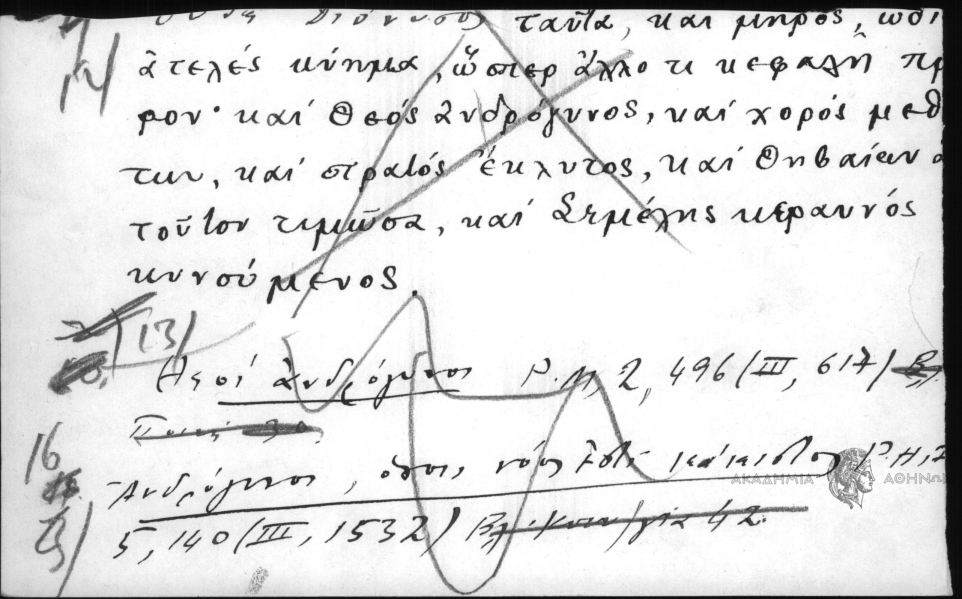 Διόνυσος ταῦτα, καὶ μηρός, ὠδι
ἀτελές κύημα, ὥσπερ ἄλλο τι κεφαλῆ πρ
ρον· καὶ Θεός ἀνδρόγυνος, καὶ χορός μεθ
των, καὶ στρατός ἔκλυτος, καὶ Θηβαίων
τοῦτον τιμῶσα, καὶ Σεμέλης κεραυνός
κυνούμενος.
13)
Θεοί ἀνδρόγυνοι P.M, 2, 496 (III, 617)
16
Ἀνδρόγυνος, ὅπου νόσος ἐστί κάκιστος P.M,
5, 140 (III, 1532) 42.
ΑΚΑΔΗΜΙΑ ΑΘΗΝΩΝ